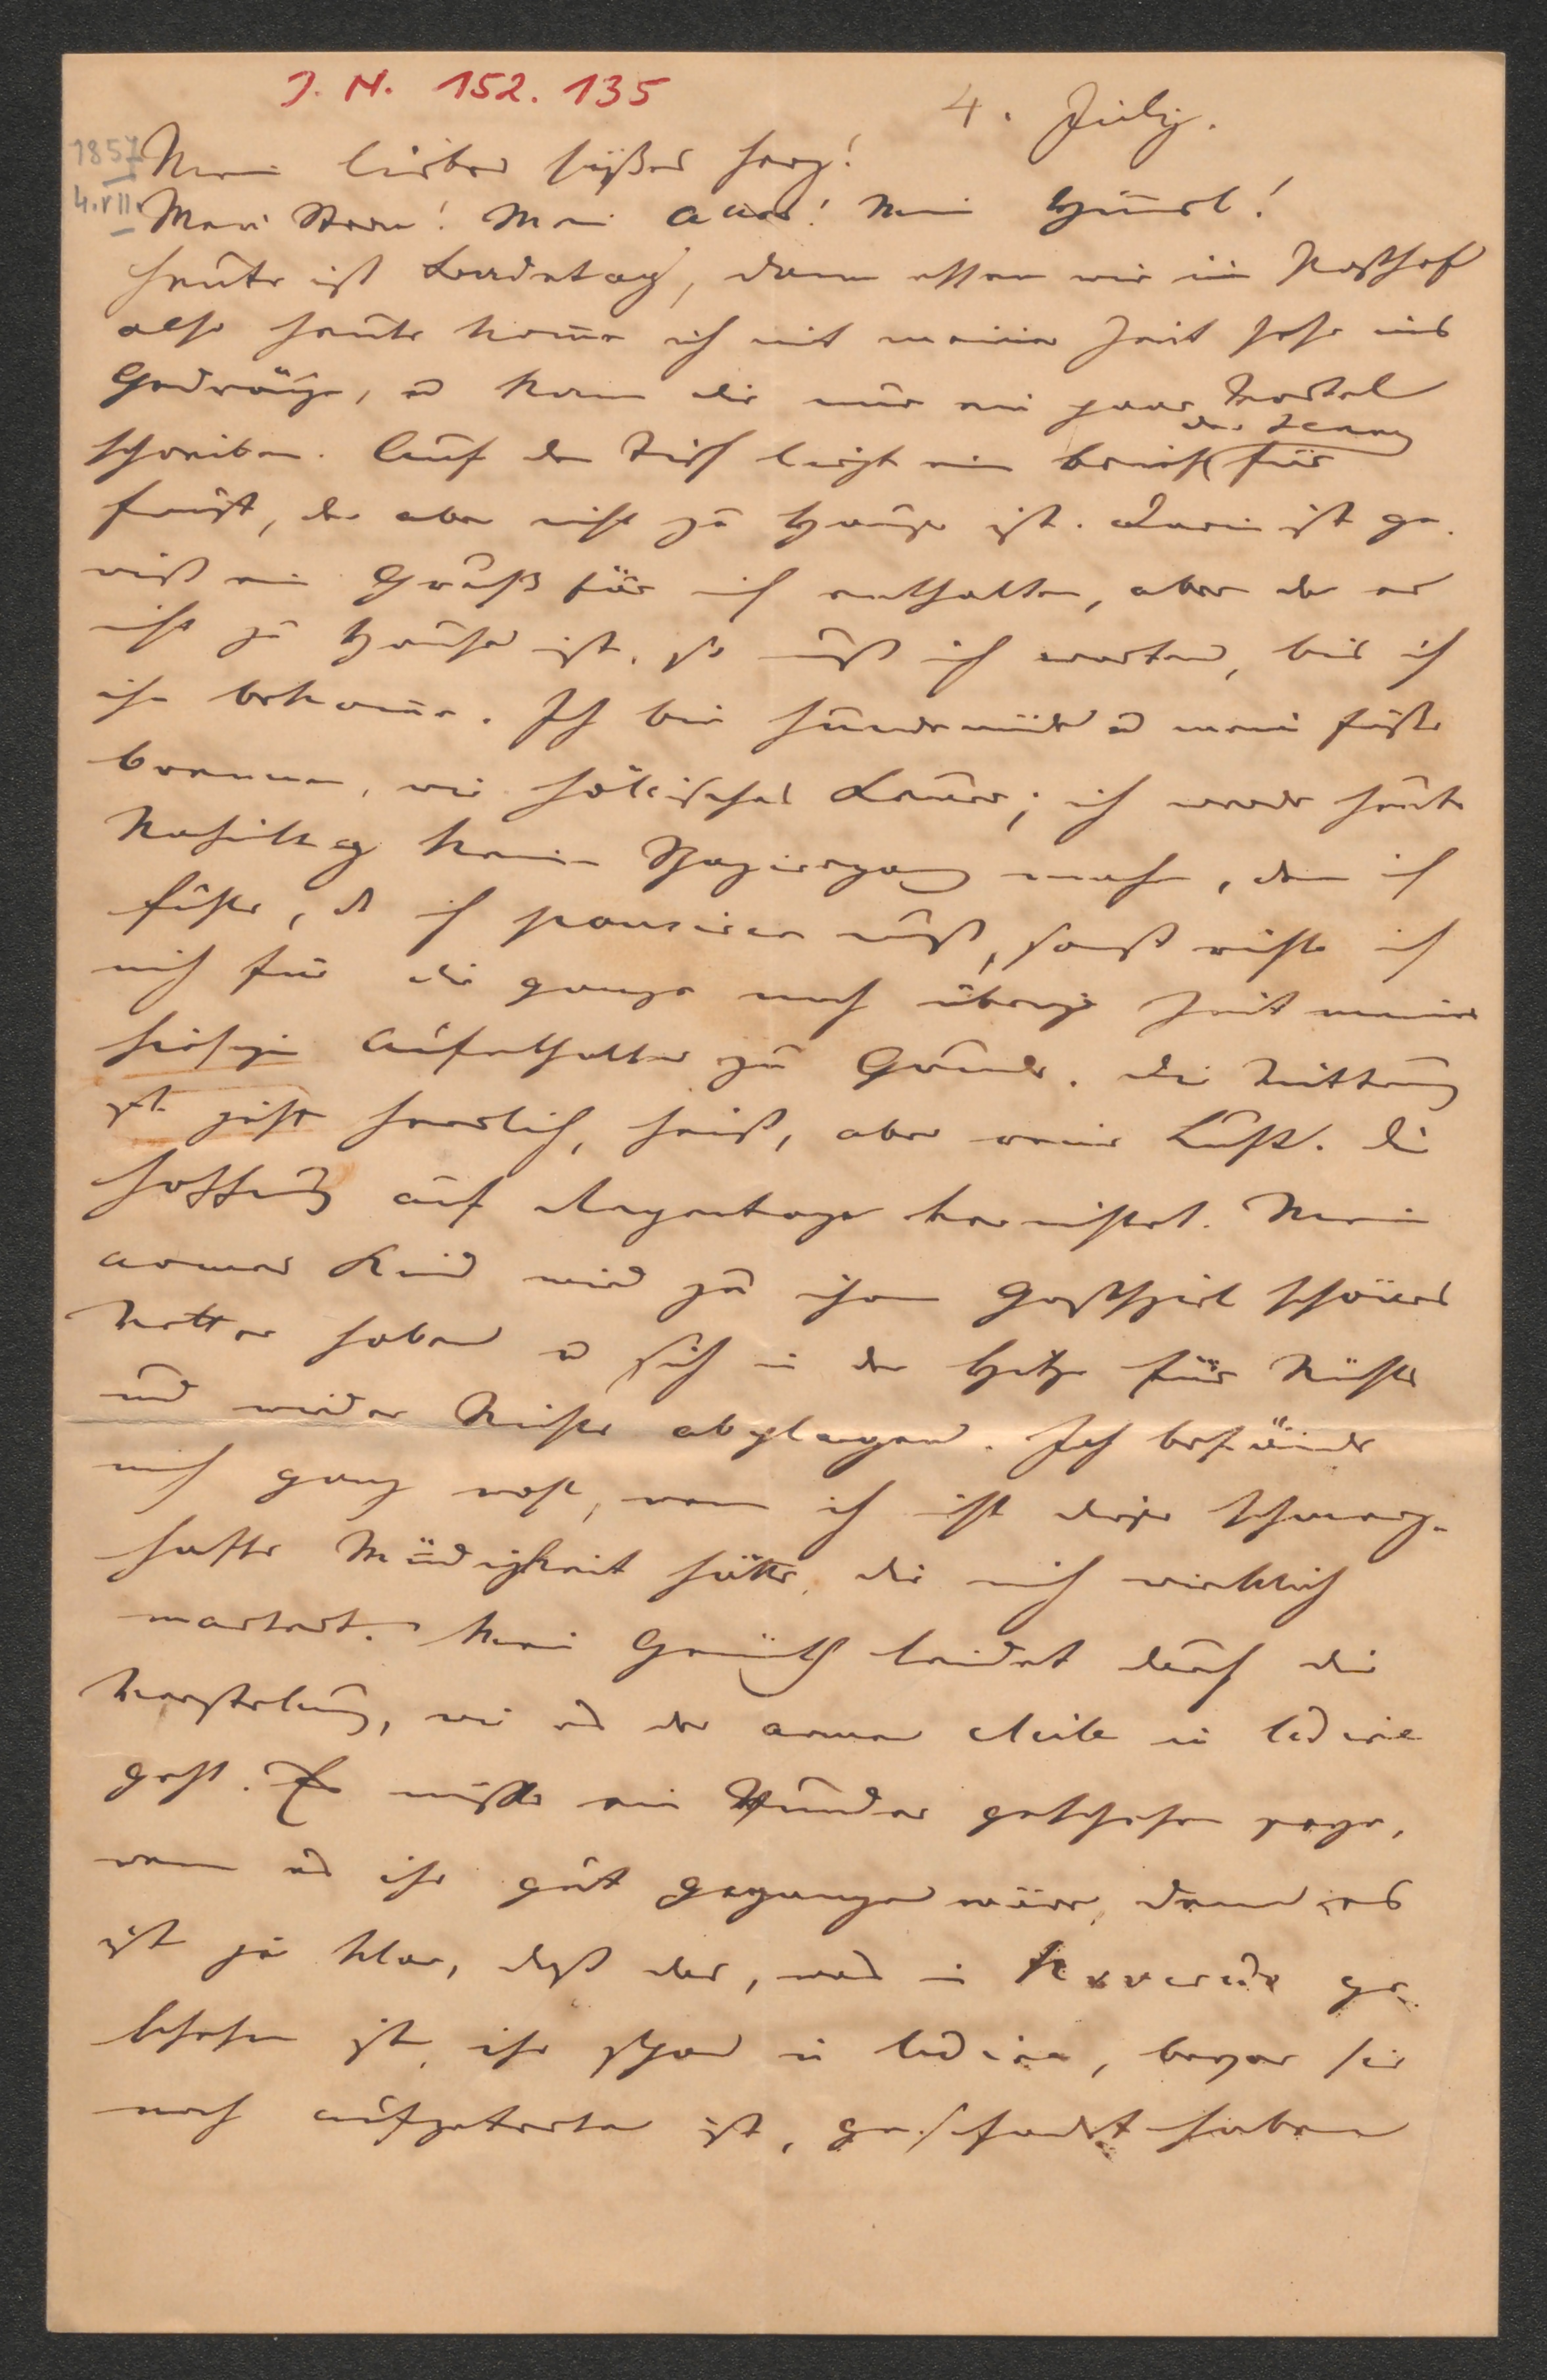 J. N. 152.135
4. July.
1857
4.VII.
Mein lieber süßes Herz!
Mein Stern! Mein Alles! Mein Himel!
Heute ist Badetag, dann essen wir im Posthof
also heute kome ich mit meiner Zeit sehr ins
Gedränge, u kann dir nur ein paar Worterl
schreiben. Auf dem Tisch liegt ein Brief der Jenny für
Faust, der aber nicht zu Hause ist. Darin ist ge-
wiß ein Gruß für mich enthalten, aber da er
nicht zu Hause ist, so muß ich warten, bis ich
ihn bekome. Ich bin hundemüde u meine Füße
brennen, wie höllisches Feuer; ich werde heute
Nachmittag keinen Spaziergang machen, denn ich
fühle, ds ich pausiren muß, sonst richte ich
mich für die ganze noch übrige Zeit meines
hiesigen Aufenthaltes zu Grunde. Die Witterung
ist jetzt herrlich, heiß, aber reine Luft. Die
Hoffnung auf Regentage vernichtet. Mein
armes Kind wird zu ihrem Gastspiel schönes
Wetter haben u sich in der Hitze für Nichts
und wieder Nichts abplagen. Ich befände
mich ganz wohl, wenn ich nicht diese schmerz-
hafte Müdigkeit hätte, die mich wirklich
martert. Mein Gemüth leidet durch die
Vorstellung, wie es der armen in Udine
geht. Es müßte ein Wunder geschehen seyn,
wenn es ihr gut gegangen wäre, denn es
ist ja klar, daß das, was in Rovereto ge-
schehen ist, ihr schon in Udine, bevor sie
noch aufgetreten ist, geschadet haben